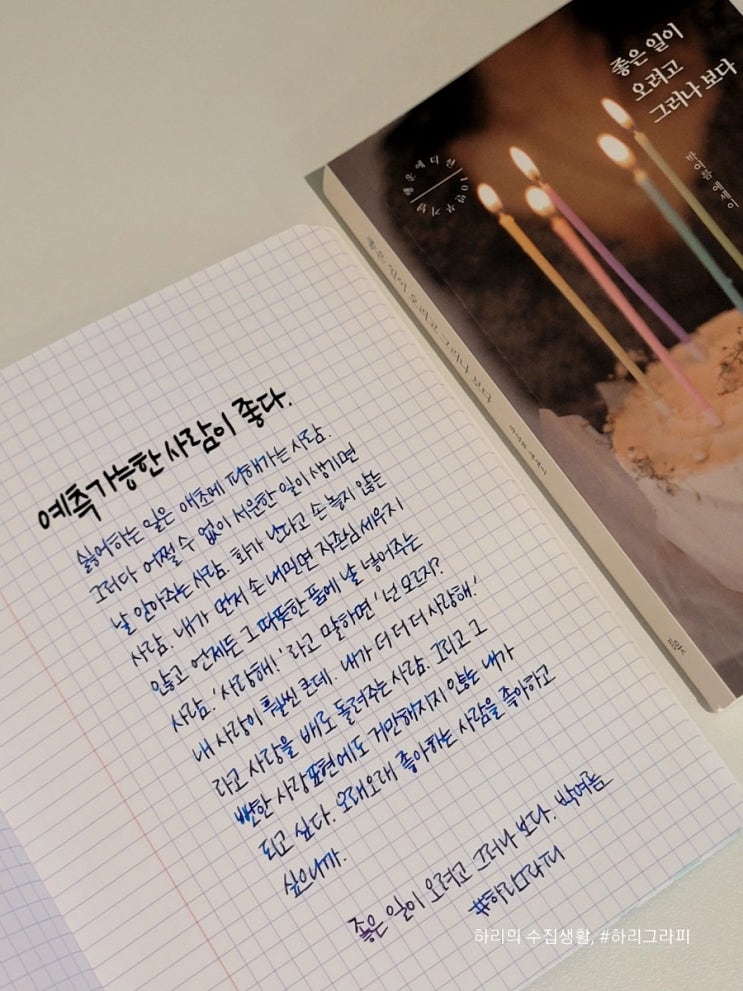 좋은 일이
오려고
그러나 보다
박여름 에세이
10만 부 기념
좋은 일이 오려고 그러나 보다
박여름 에세이
예측가능한 사람이 좋다.
싫어하는 일은 애초에 피해가는 사람.
그러다 어쩔 수 없이 서운한 일이 생기면
날 안아주는 사람. 화가 난다고 손 놓지 않는
사람. 내가 먼저 손 내밀면 자존심 세우지
않고 언제든 그 따뜻한 품에 날 넣어주는
사람. '사랑해!' 라고 말하면 '넌 모르지?
내 사랑이 훨씬 큰데. 내가 더 더 더 사랑해.'
라고 사랑을 배로 돌려주는 사람. 그리고 그
뻔한 사랑표현에도 거만해지지 않는 내가
되고 싶다. 오래오래 좋아하는 사람을 좋아하고
싶으니까.
좋은 일이 오려고 그러나 보다. 박여름
#하리그라피
하리의 수집생활, #하리그라피